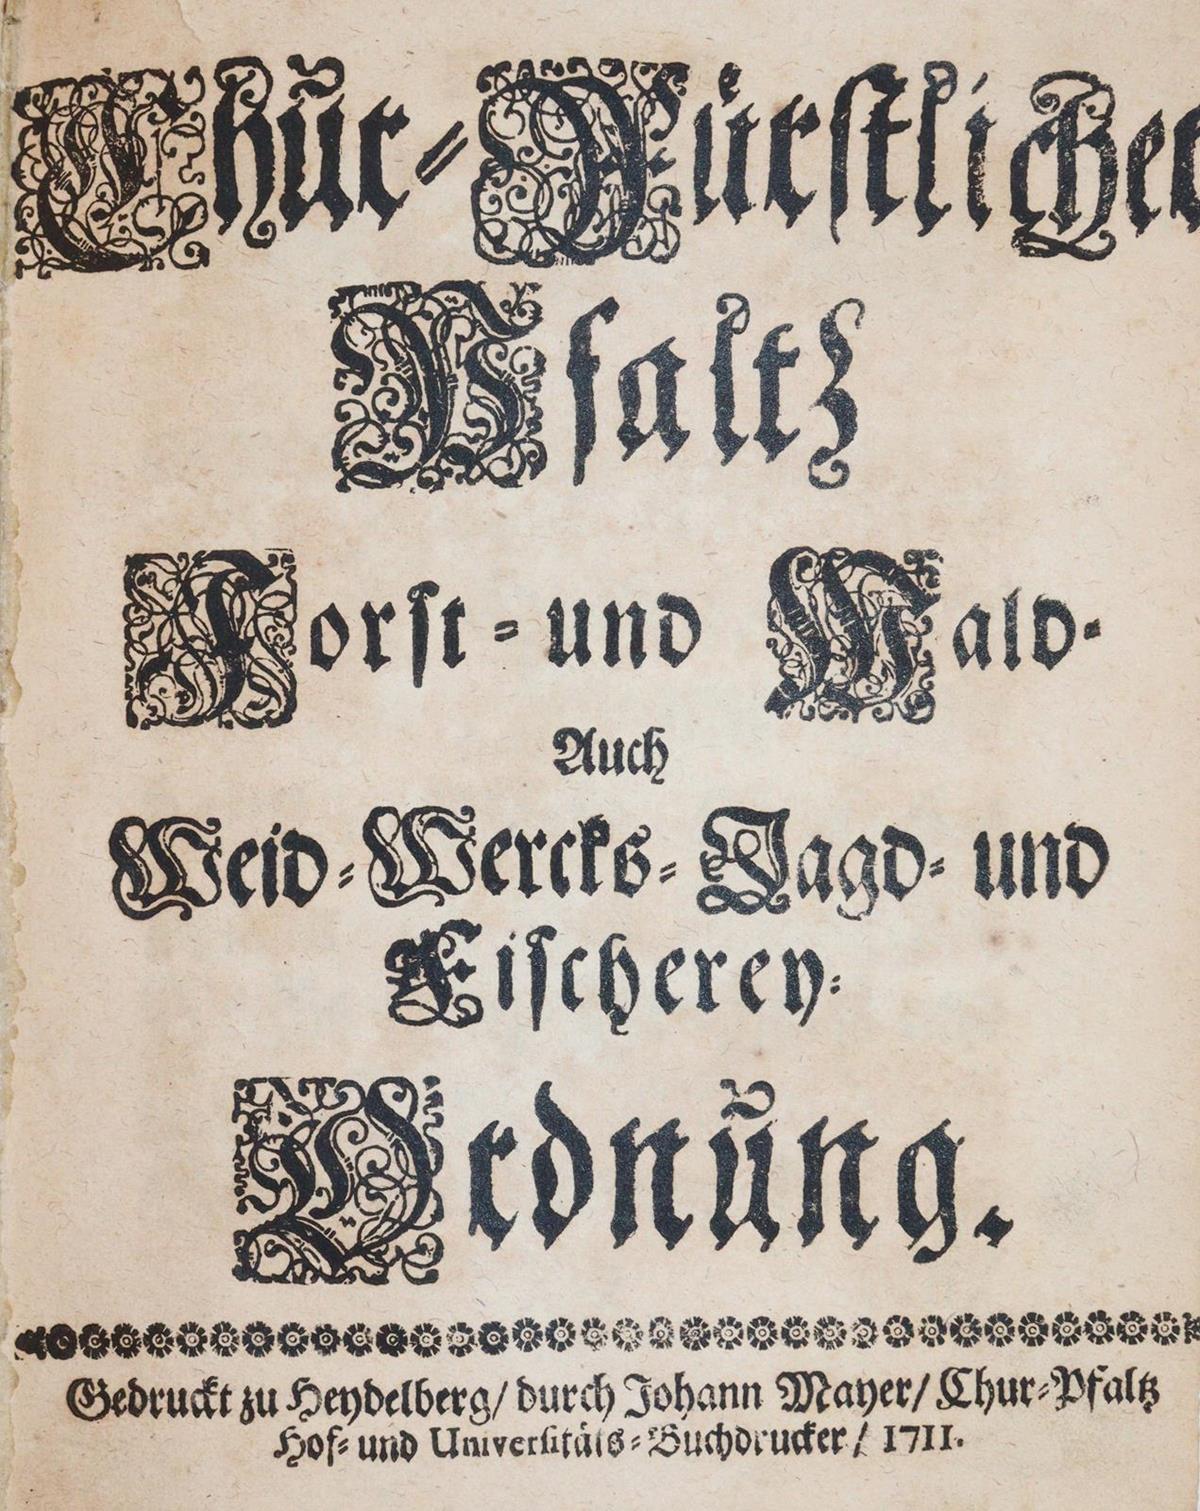 Chur-Fürstlicher
Pfaltz
Forst- und Wald-
Auch
Weid-Wercks-Jagd- und
Fischerey-
Ordnung.
Gedruckt zu Heydelberg/ durch Johann Mayer/ Chur-Pfaltz
Hof- und Universitäts-Buchdrucker/ 1711.